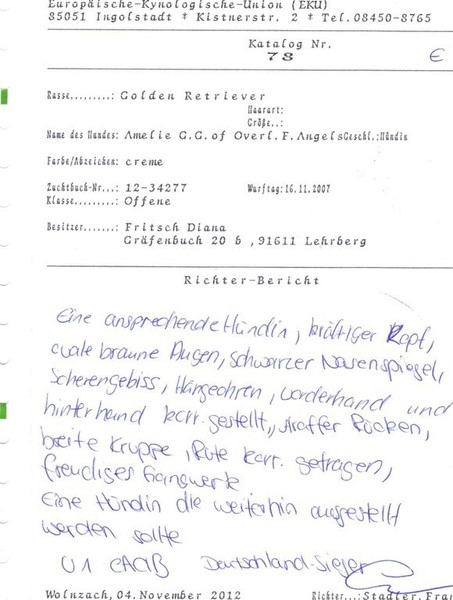 Europäische-Kynologische-Union (EKU)
85051 Ingolstadt * Kistnerstr. 2 * Tel.08450-8765
Katalog Nr.
78 €
Rasse.........: Golden Retriever
Haarart:
Größe..:
Name des Hundes: Amelie G.G. of Overl. F. AngelsGeschl.:Hündin
Farbe/Abzeichen: creme
Zuchtbuch-Nr...: 12-34277 Wurftag:16.11.2007
Klasse.........: Offene
Besitzer.......: Fritsch Diana
Gräfenbuch 20 b ,91611 Lehrberg
Richter-Bericht
Eine ansprechende Hündin, kräftiger Kopf,
ovale braune Augen, schwarzer Nasenspiegel,
Scherengebiss, Hängeohren, Vorderhand und
hinterhand korr. gestellt, straffer Rücken,
breite Kruppe, Rute korr. getragen,
freudiges Gangwerk
Eine Hündin die weiterhin ausgestellt
werden sollte
V1 CACIB Deutschland-Sieger
Wolnzach, 04.November 2012 Richter...: Stadler, Fran